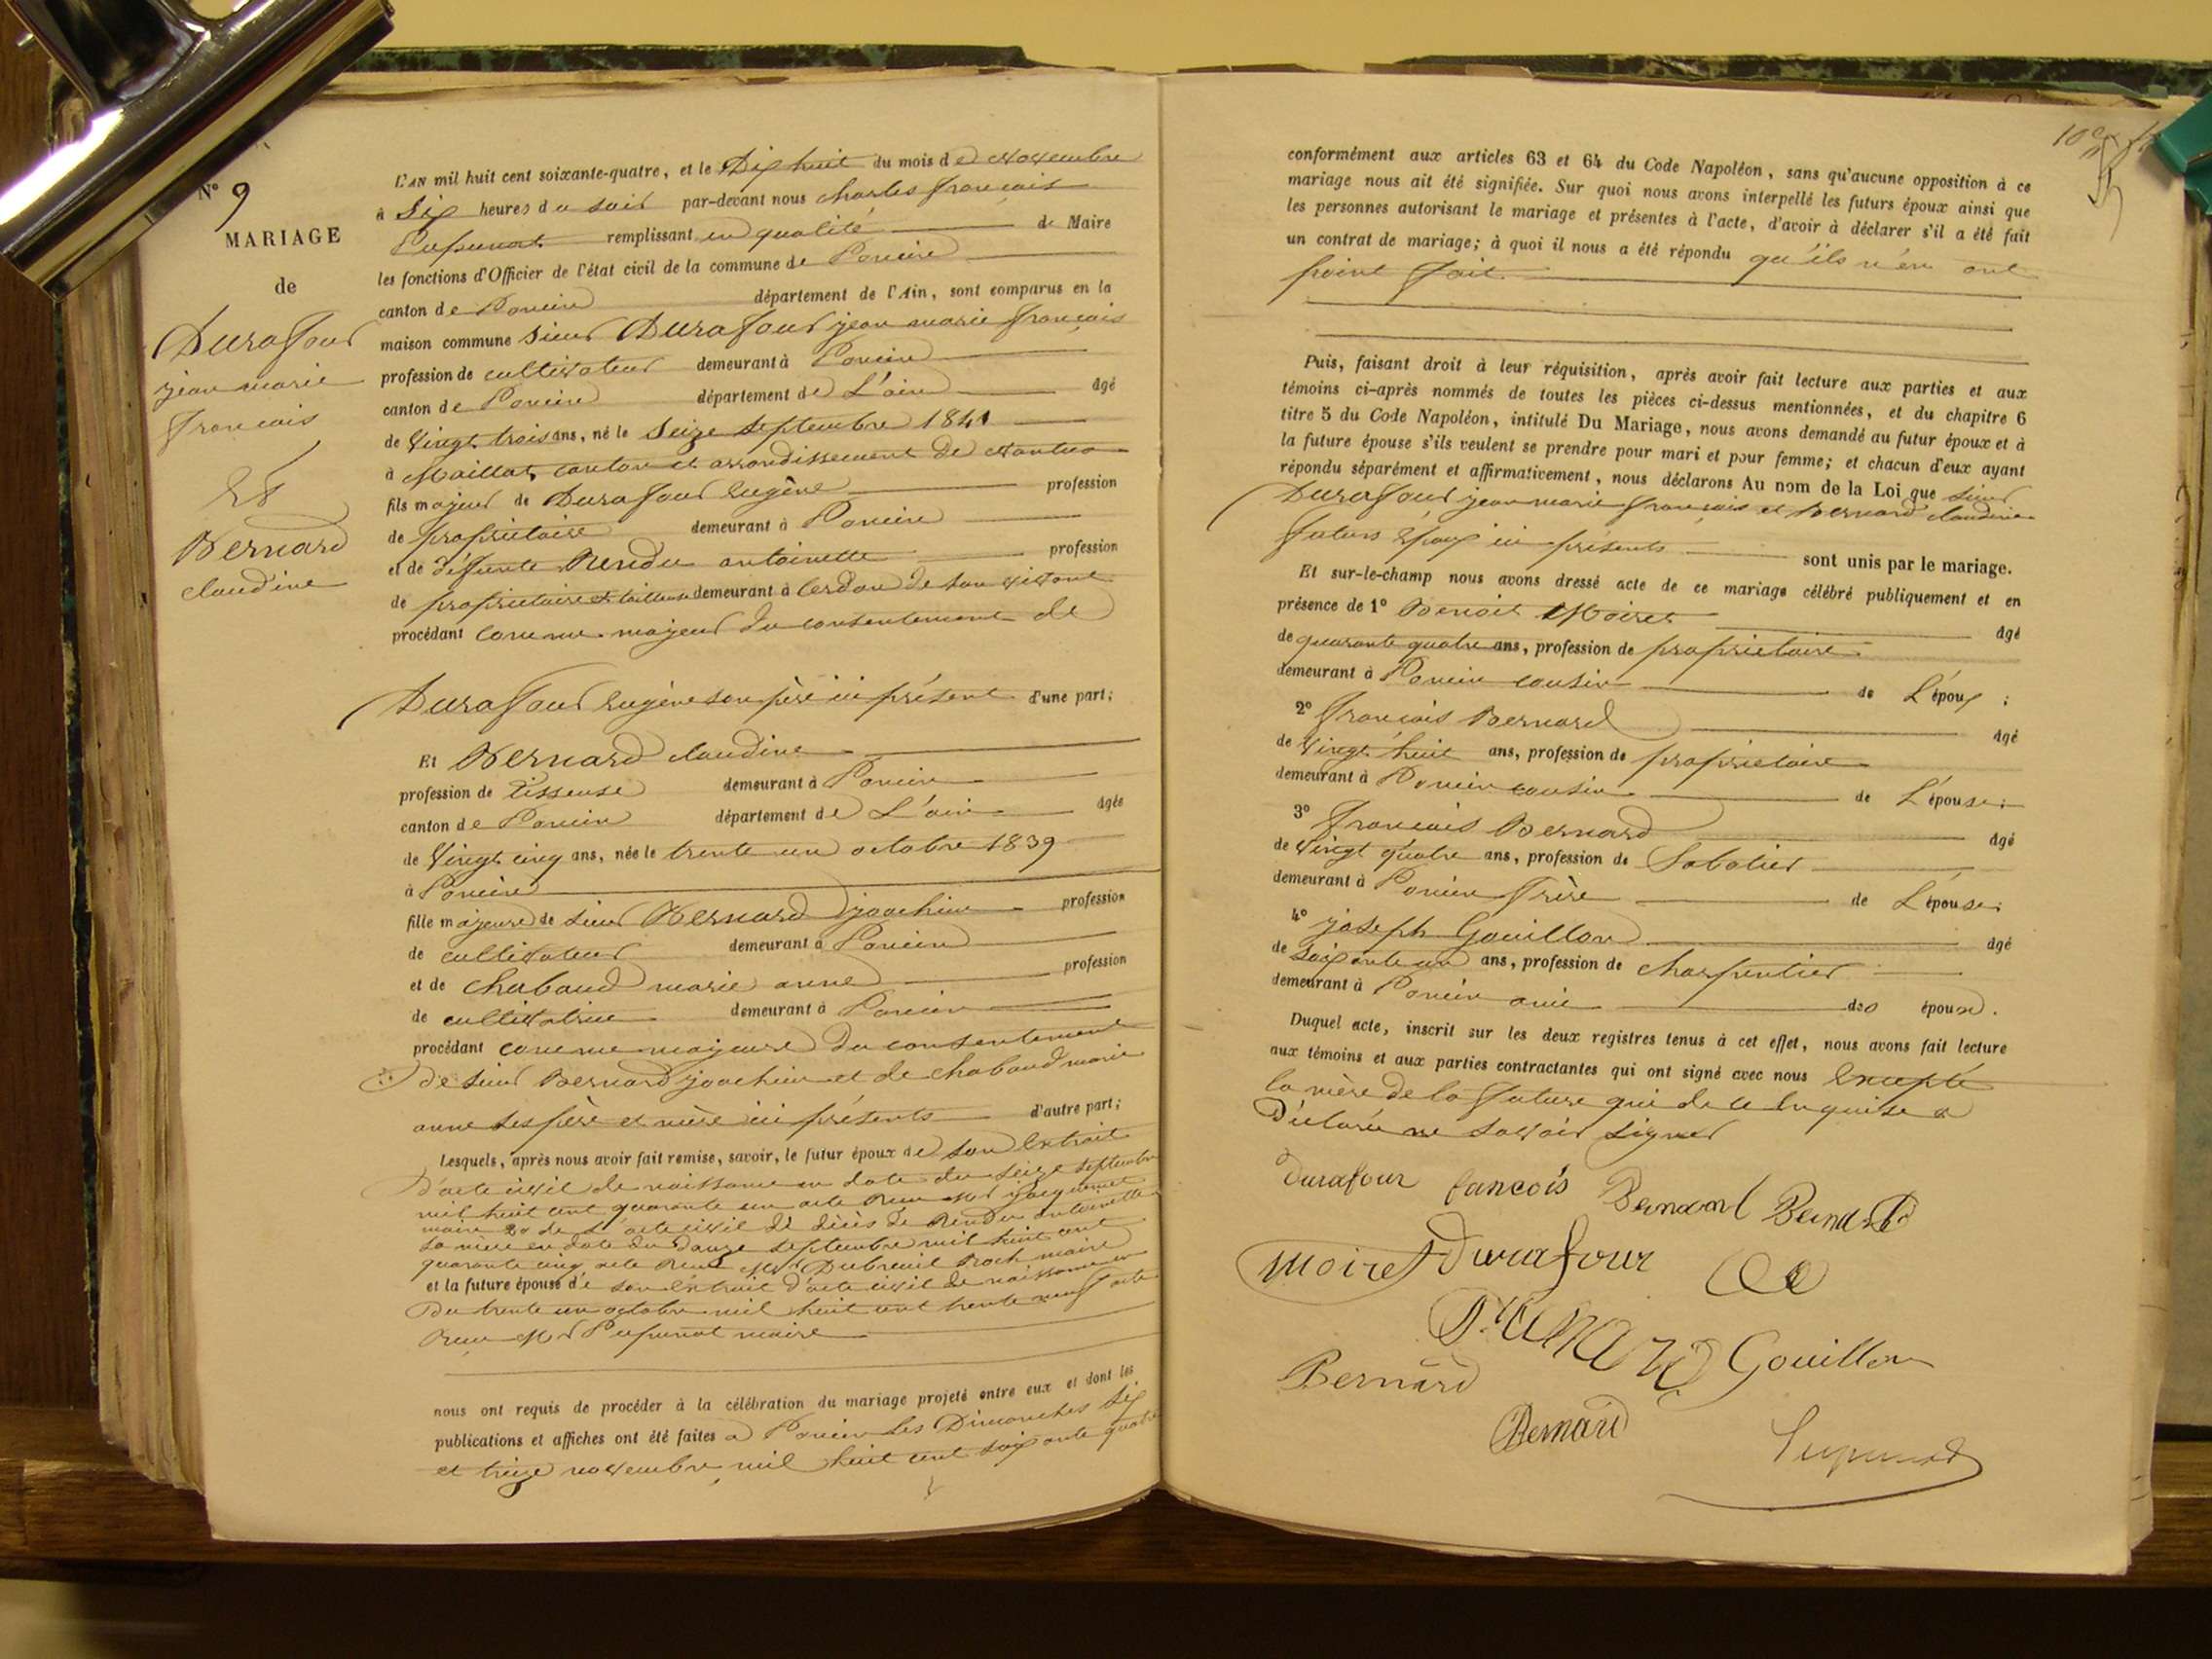 N° 9
MARIAGE
de
Durafour
jean marie
françois
Et
Bernard
claudine
L'AN mil huit cent soixante-quatre, et le Dix huit du mois de Novembre
à Six heures du soir par-devant nous charles françois
Pupunat remplissant en qualité de Maire
les fonctions d'Officier de l'état civil de la commune de Poncin
canton de Poncin département de l'Ain, sont comparus en la
maison commune Sieur Durafour jean marie françois
profession de cultivateur demeurant à Poncin
canton de Poncin département de L'ain âgé
de Vingt trois ans, né le Seize Septembre 1841
à Maillat, canton et arrondissement de Nantua
fils majeur de Durafour Eugène profession
de propriétaire demeurant à Poncin
et de défunte Rendu antoinette profession
de propriétaire et demeurant à Cerdon de son vivant
procédant comme majeur du consentement de
Durafour Eugène son père ici présent d'une part;
Et Bernard claudine
profession de Tisseuse demeurant à Poncin
canton de Poncin département de L'ain âgée
de Vingt cinq ans, née le trente un octobre 1839
à Poncin
fille majeure de Sieur Bernard joachim profession
de cultivateur demeurant à Poncin
et de chabaud marie anne profession
de cultivatrice demeurant à Poncin
procédant comme majeure du consentement
de Sieur Bernard joachim et de chabaud marie
anne ses père et mère ici présents d'autre part;
Lesquels, après nous avoir fait remise, savoir, le futur époux de son Extrait
d'acte civil de naissance en date du seize septembre
mil huit cent quarante un acte Reçu Mr jacquemet
maire 2° de L'acte civil de décès de Rendu antoinette
sa mère en date du Douze septembre mil huit cent
quarante cinq acte Reçu Mr Dubreuil Roch maire
et la future épouse de son Extrait d'acte civil de naissance en
Du trente un octobre mil huit cent trente neuf acte
Reçu Mr Pupunat maire
nous ont requis de procéder à la célébration du mariage projeté entre eux et dont les
publications et affiches ont été faites à Poncin les Dimanches six
et treize novembre mil huit cent soixante quatre
conformément aux articles 63 et 64 du Code Napoléon, sans qu'aucune opposition à ce
mariage nous ait été signifiée. Sur quoi nous avons interpellé les futurs époux ainsi que
les personnes autorisant le mariage et présentes à l'acte, d'avoir à déclarer s'il a été fait
un contrat de mariage; à quoi il nous a été répondu qu'ils n'en ont
point fait.
Puis, faisant droit à leur réquisition, après avoir fait lecture aux parties et aux
témoins ci-après nommés de toutes les pièces ci-dessus mentionnées, et du chapitre 6
titre 5 du Code Napoléon, intitulé Du Mariage, nous avons demandé au futur époux et à
la future épouse s'ils veulent se prendre pour mari et pour femme; et chacun d'eux ayant
répondu séparément et affirmativement, nous déclarons Au nom de la Loi que Sieur
Durafour jean marie françois et Bernard claudine
futurs époux ici présents sont unis par le mariage.
Et sur-le-champ nous avons dressé acte de ce mariage célébré publiquement et en
présence de 1° Benoit Moiret âgé
de quarante quatre ans, profession de propriétaire
demeurant à Poncin cousin de L'époux ;
2° françois Bernard âgé
de Vingt huit ans, profession de propriétaire
demeurant à Poncin cousin de L'épouse;
3° françois Bernard âgé
de Vingt quatre ans, profession de Sabotier
demeurant à Poncin frère de L'épouse;
4° joseph Gouillon âgé
de soixante un ans, profession de charpentier
demeurant à Poncin ami des époux.
Duquel acte, inscrit sur les deux registres tenus à cet effet, nous avons fait lecture
aux témoins et aux parties contractantes qui ont signé avec nous Excepté
la mère de la future qui de ce Enquise a
Déclaré ne savoir signer
durafour fancois Bernard Bernard
Moiret Durafour
Bernard Gouillon
Bernard
Bernard Pupunat